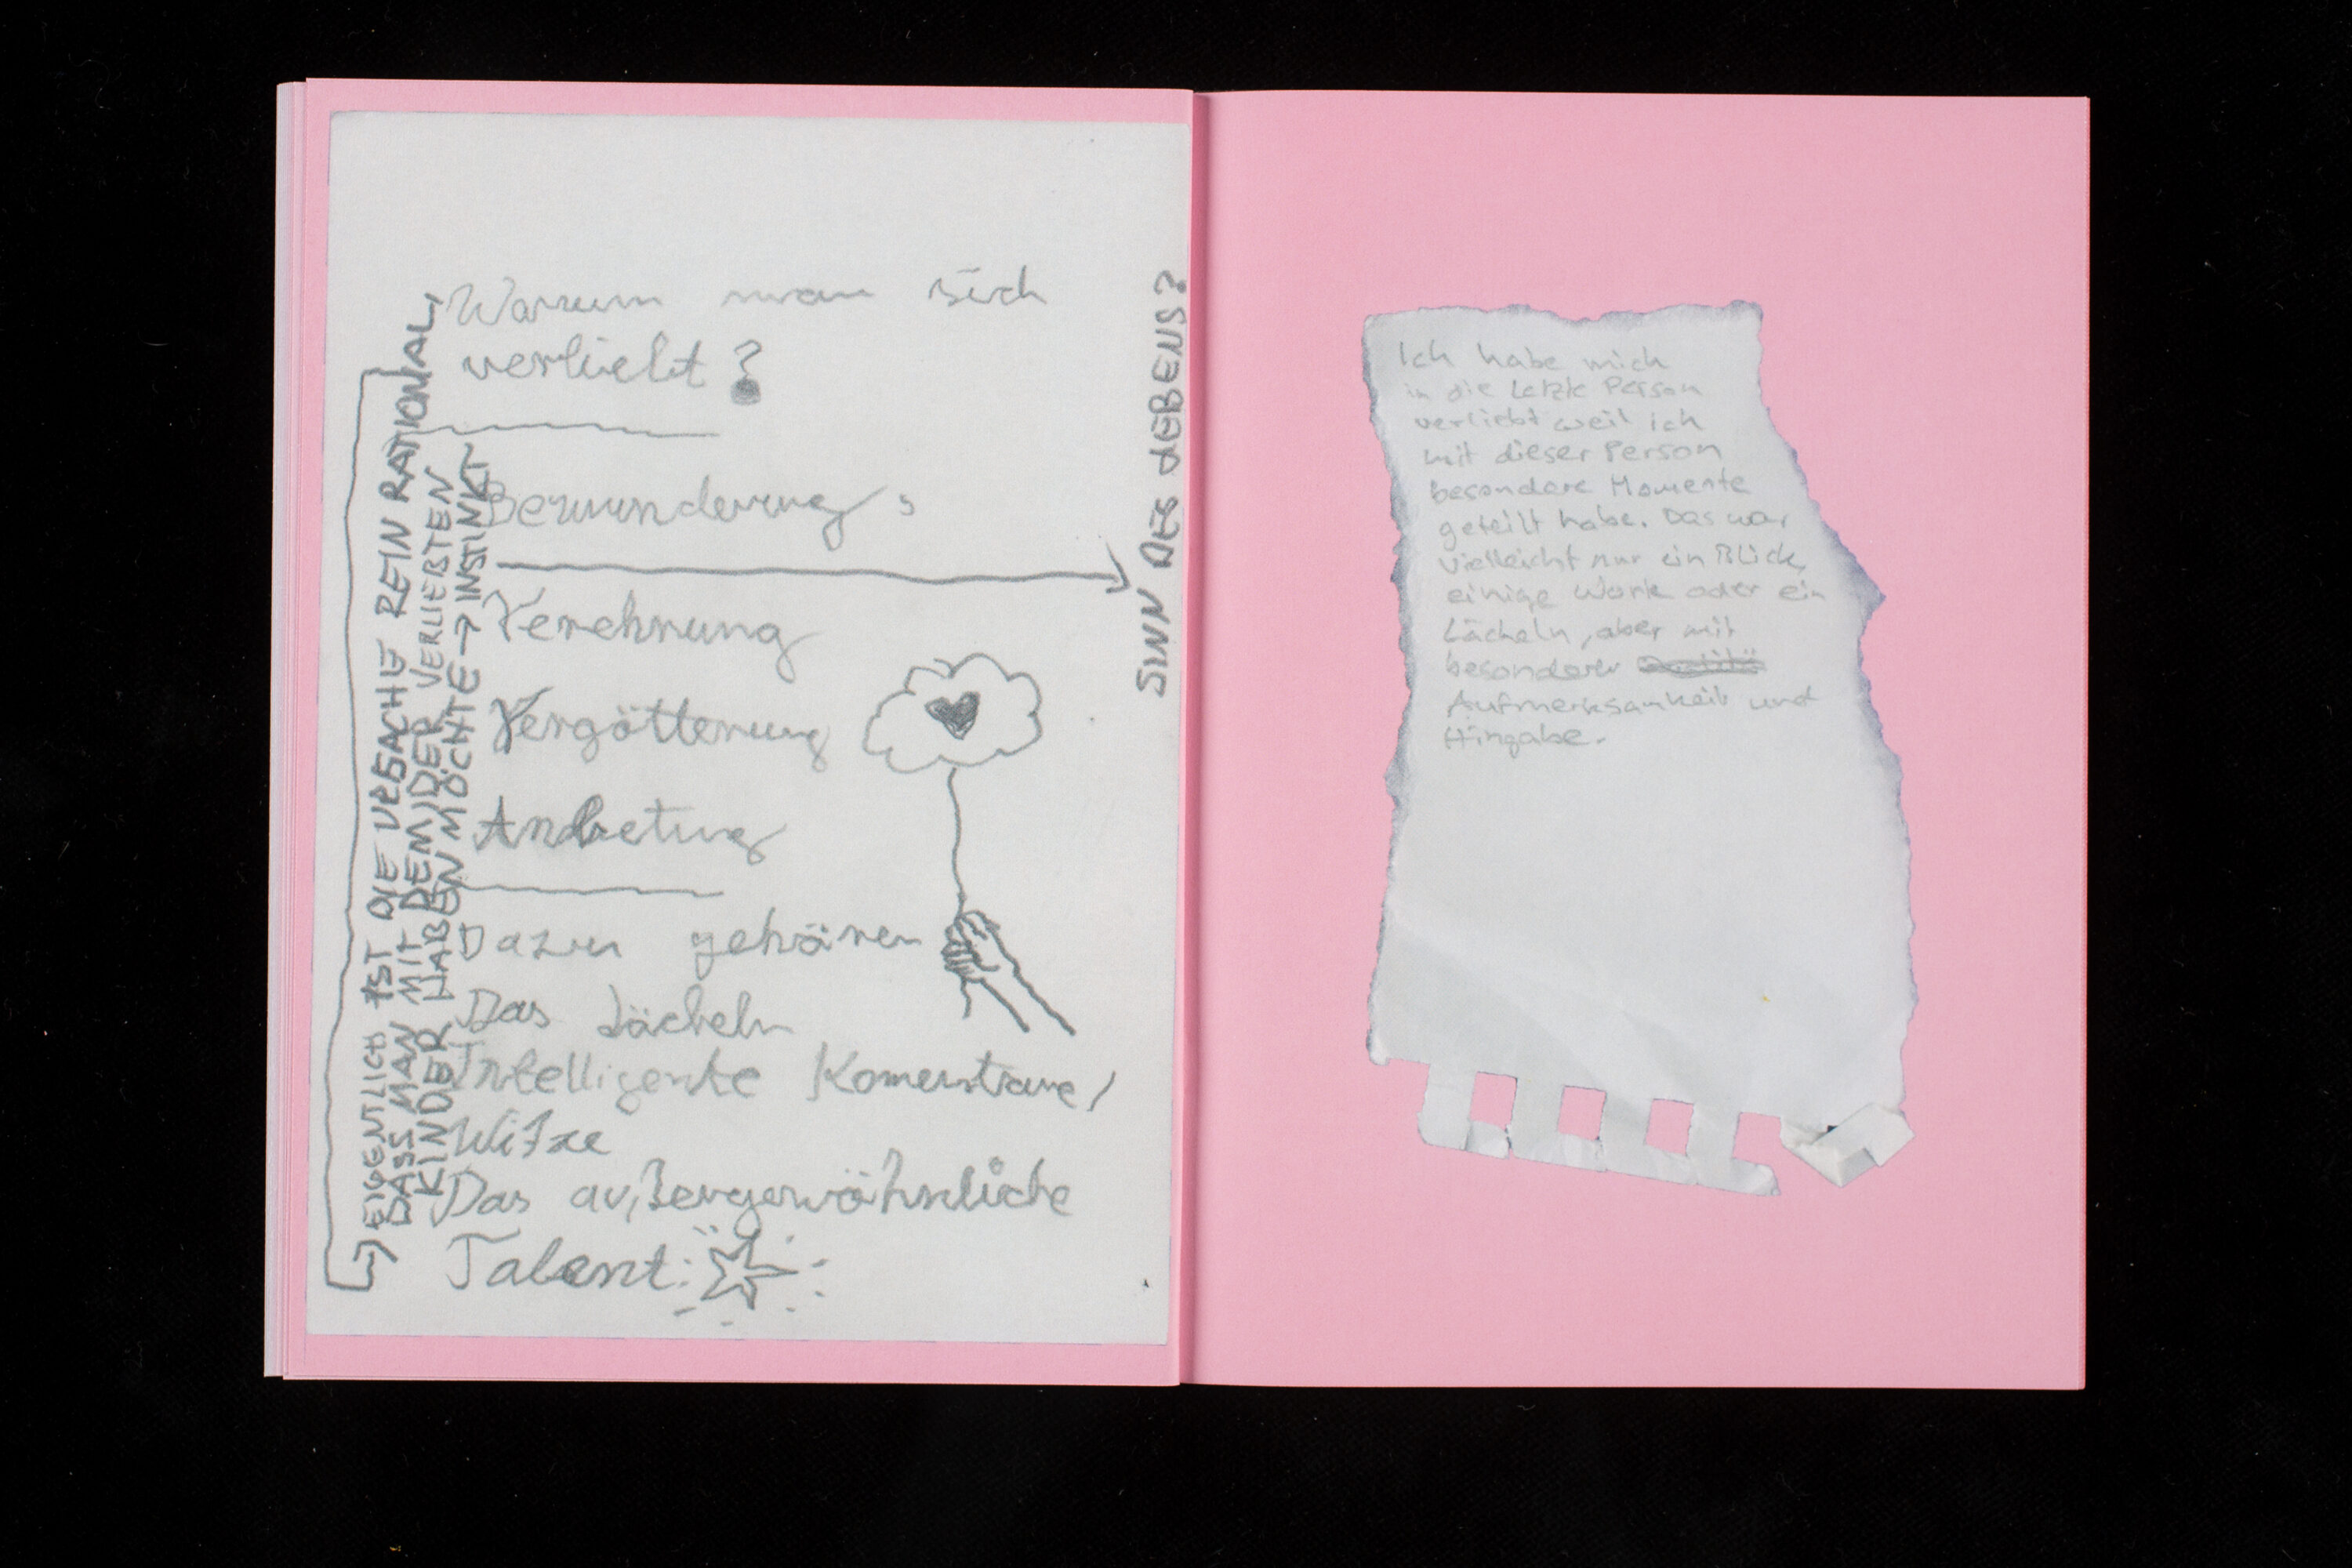 Warum man sich
verliebt?
Bewunderung,
Verehrung
Vergötterung
Anbetung
Dazu gehören
Das Lächeln
Intelligente Komentare/
Witze
Das außergewöhnliche
Talent:
EIGENTLICH IST DIE URSACHE REIN RATIONAL,
DASS MAN MIT DEM/DER VERLIEBTEN
KINDER HABEN MÖCHTE → INSTINKT
SINN DES LEBENS?
Ich habe mich
in die letzte Person
verliebt weil ich
mit dieser Person
besondere Momente
geteilt habe. Das war
vielleicht nur ein Blick,
einige Worte oder ein
Lächeln, aber mit
besonderer
Aufmerksamkeit und
Hingabe.